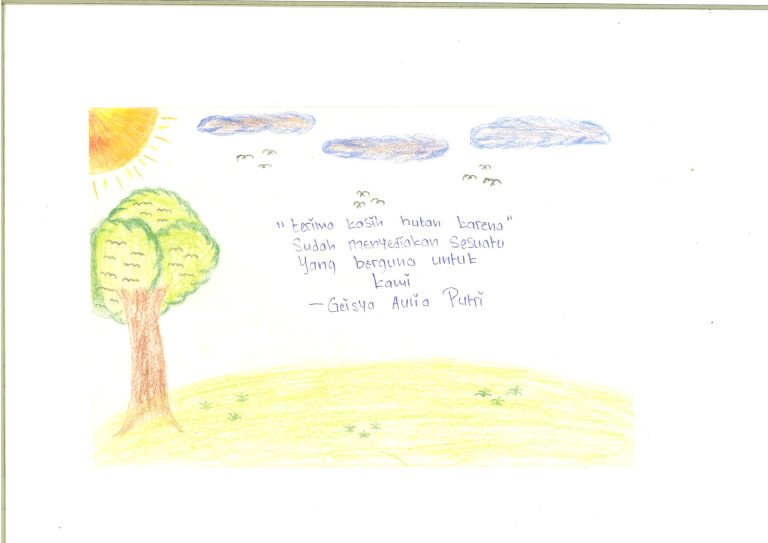 "terima kasih hutan karena"
Sudah menyediakan Sesuatu
Yang berguna untuk
kami
— Geisya Aulia Putri